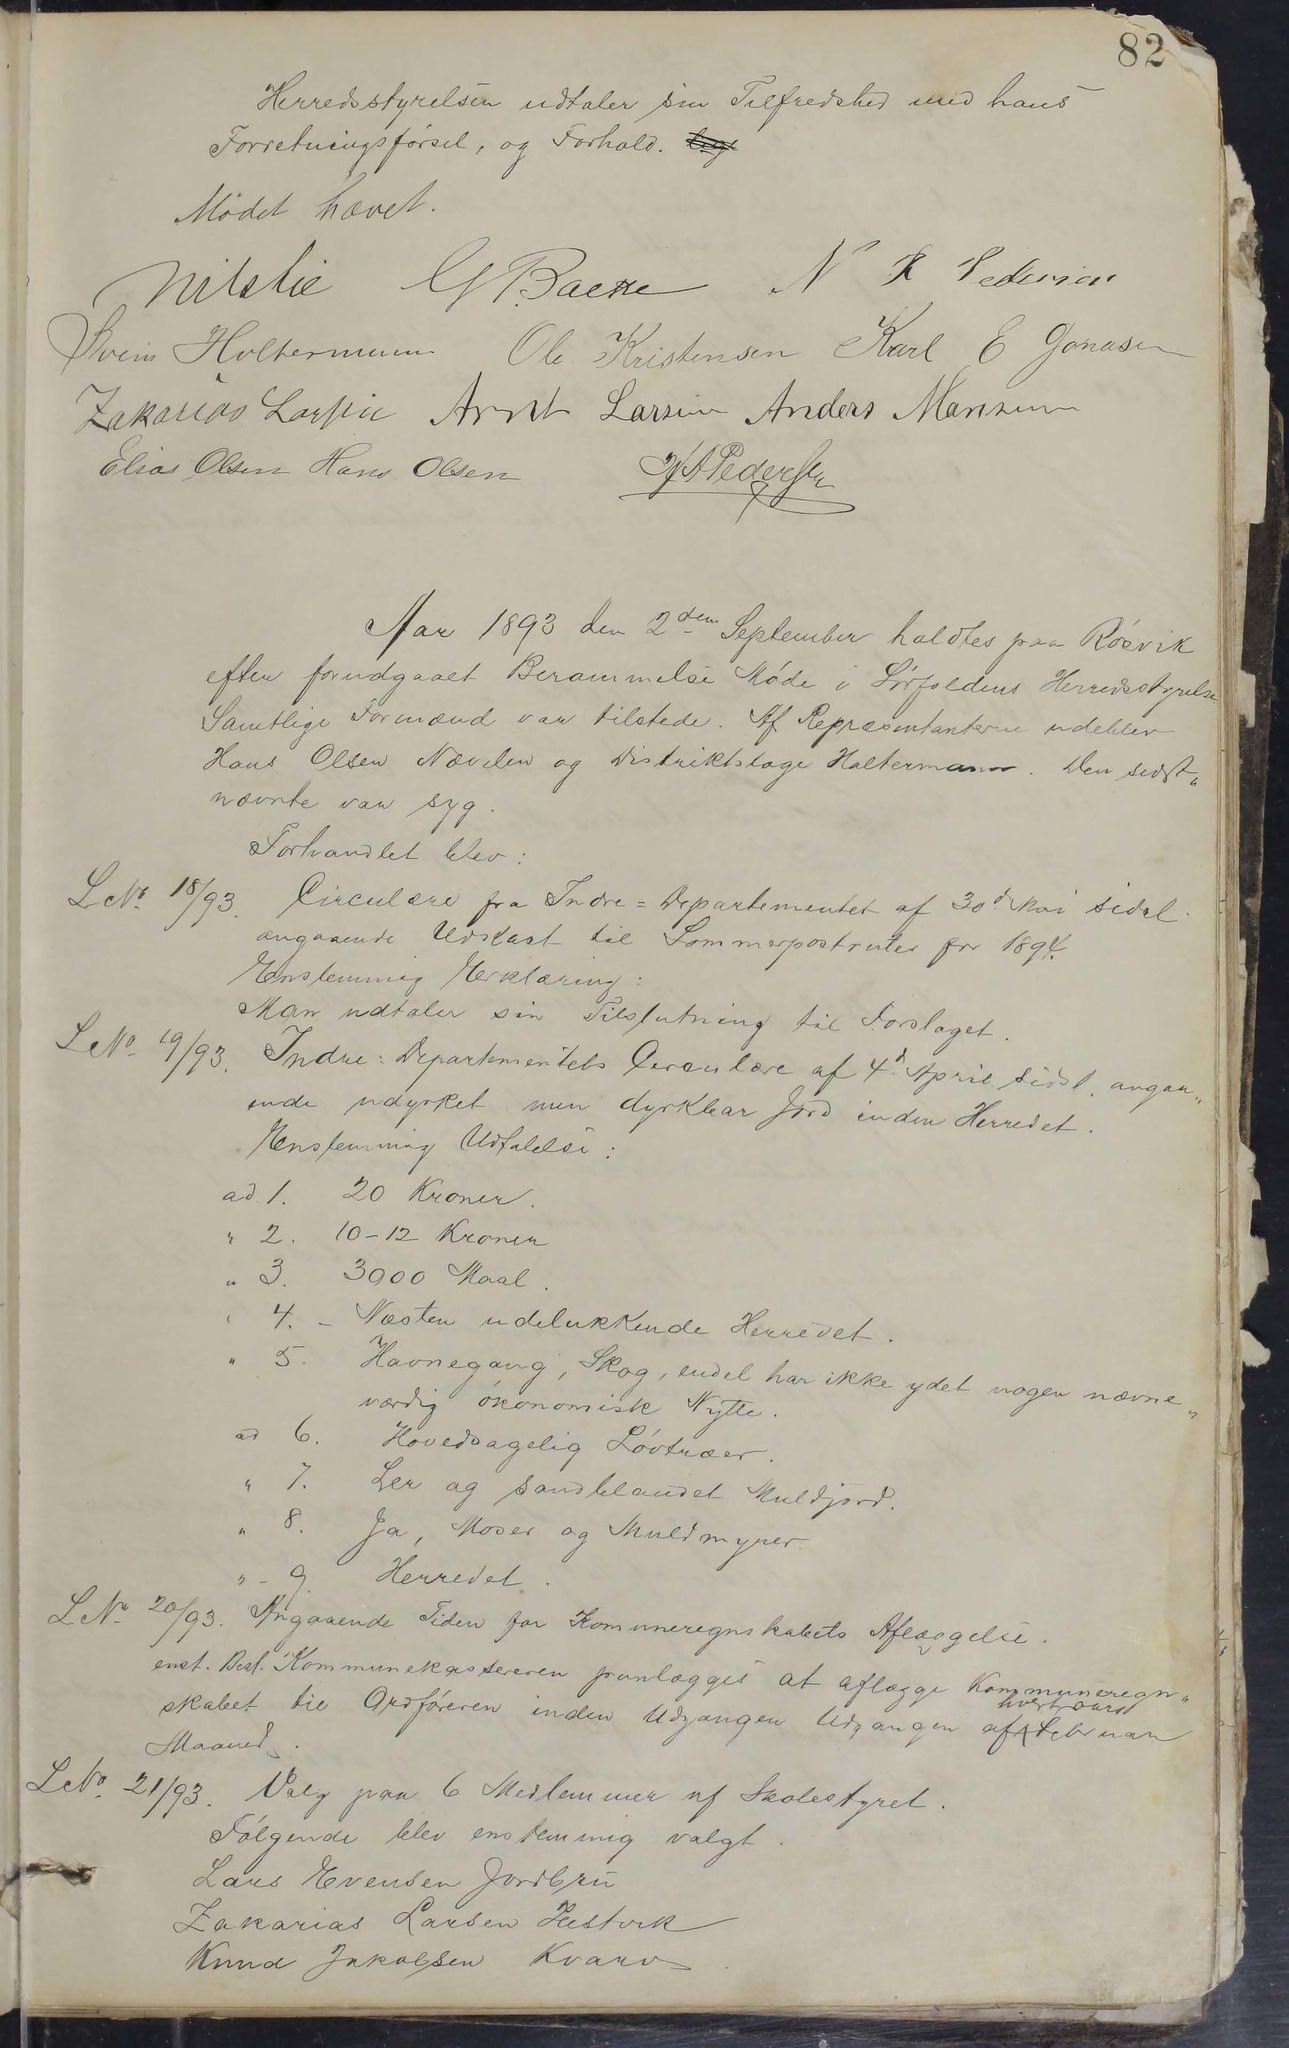 82
Herredsstyrelsen udtaler sin Tilfredshed med hans
Forretningsførsel, og Forhold.
Mødet hævet.
Nils Lie G Backe N K Pedersen
Svein Holtermann Ole Kristensen Karl E Jonasen
Zakarias Larsen Arnt Larsen Anders Monsen
Elias Olsen Hans Olsen Pedersen
Aar 1893 den 2den September holdtes paa Røsvik
efter forudgaaet Berammelse Møde i Sørfoldens Herredsstyrelse
Samtlige Formænd var tilstede. Af Repræsentanterne udeblev
Hans Olsen Nævelen og Distriktslæge Holtermann. Den sidst„
nævnte var syg.
Forhandlet blev:
L No. 18/93. Circulære fra Indre = Departementet af 30d. Mai sidstl.
angaaende Udkast til Sommerpostruter for 1894.
Enstemmig Erklæring:
Man udtaler sin Tilslutning til Forslaget.
L No. 19/93. Indre = Departementets Circulære af 4d. April sidstl. angaa„
ende udyrket men dyrkbar Jord inden Herredet.
Enstemmig Udtalelse:
ad 1. 20 Kroner.
" 2. 10-12 Kroner
" 3. 3000 Maal.
" 4. - Næsten udelukkende Herredet.
" 5. Havnegang, Skog, endel har ikke ydet nogen nævne„
værdig økonomisk Nytte.
ad 6. Hovedsagelig Løvtræer.
" 7. Ler og sandblandet Muldjord.
" 8. Ja, Moser og Muldmyrer
" - 9. Herredet.
L No. 20/93. Angaaende Tiden for Kommuneregnskabets Aflæggelse.
enst. Besl. Kommunekassereren paalægges at aflægge Kommuneregn„
skabet til Ordføreren inden Udgangen Udgangen af hvert Aars Februar
Maaned.
L No. 21/93. Valg paa 6 Medlemmer af Skolestyret.
Følgende blev enstemmig valgt.
Lars Evensen Jordbru
Zakarias Larsen Hestvik
Knud Jakobsen Kvarv